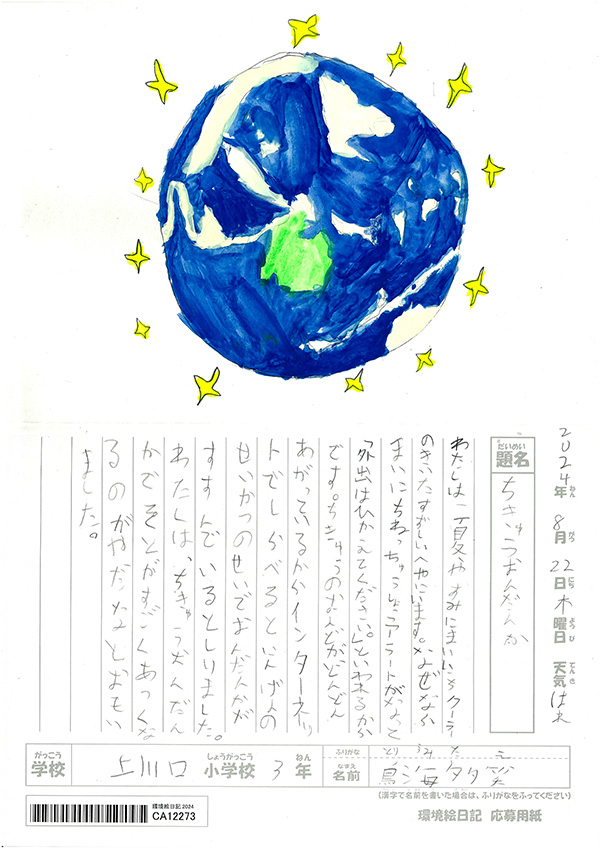 2024年 8月 22日 木曜日 天気 はれ
ねん がつ にち ようび てんき
だいめい
題名 ちきゅうおんだんか
わたしは、夏やすみにまいにちクーラー
のきいたすずしいへやにいます。なぜなら
まいにちねっちゅうしょうアラートがなって
「外出はひかえてください。」といわれるから
です。ちきゅうのおんどがどんどん
あがっているからインターネッ
トでしらべるとにんげんの
せいかつのせいでおんだんかが
すすんでいるとしりました。
わたしは、ちきゅうおんだん
かでそとがすごくあつくな
るのがやだなとおもい
ました。
がっこう しょうがっこう ねん
学校 上川口 小学校 3年
ふりがな とりうみ たえ
なまえ
名前 鳥海 夕笑
(漢字で名前を書いた場合は、ふりがなをふってください)
環境絵日記 2024
CA12273
環境絵日記 応募用紙